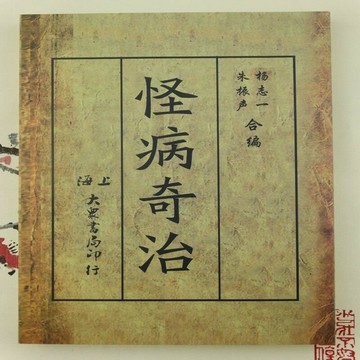 杨志一
朱振声
合编
怪病奇治
上海
大众书局印行